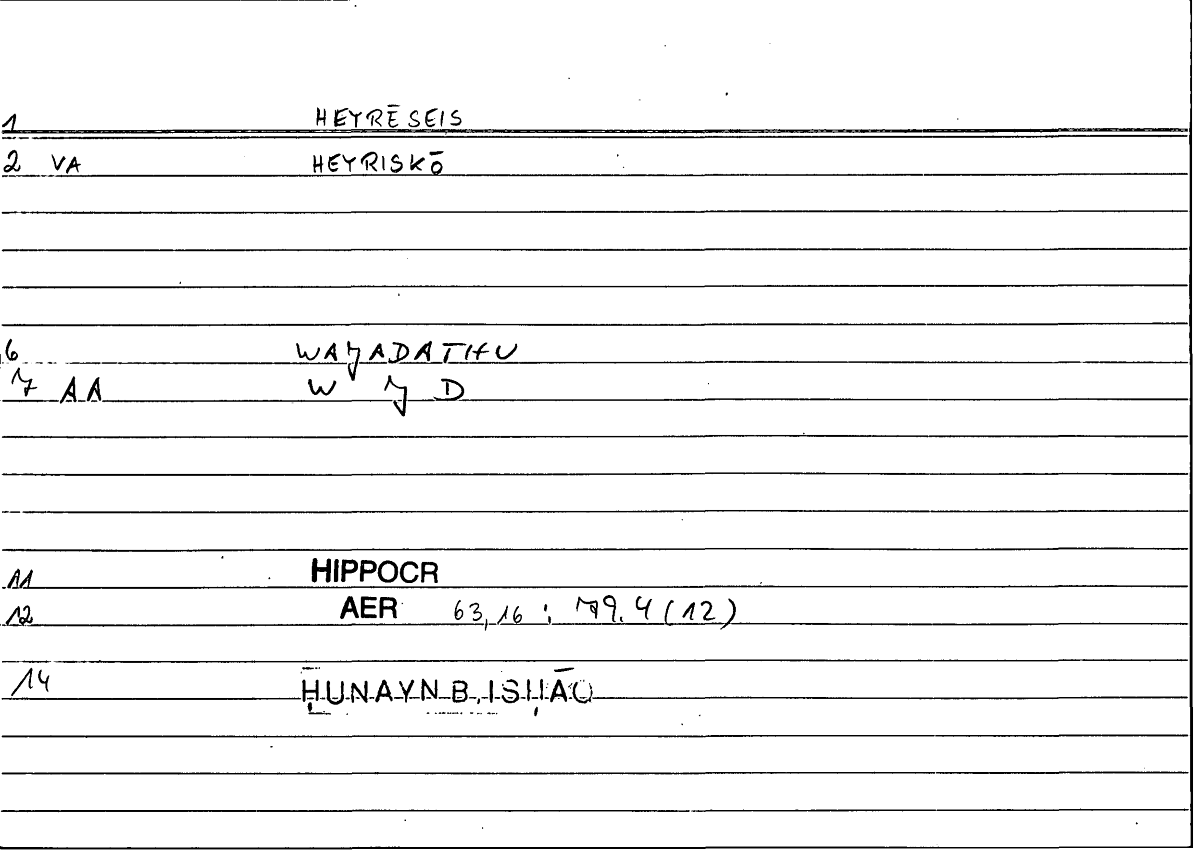 1 HEYRĒSEIS
2 VA HEYRISKŌ
6 WAJADATHU
7 AA W J D
11 HIPPOCR
12 AER 63,16 : 79.4 (12)
14 ḤUNAYN B. ISḤĀQ